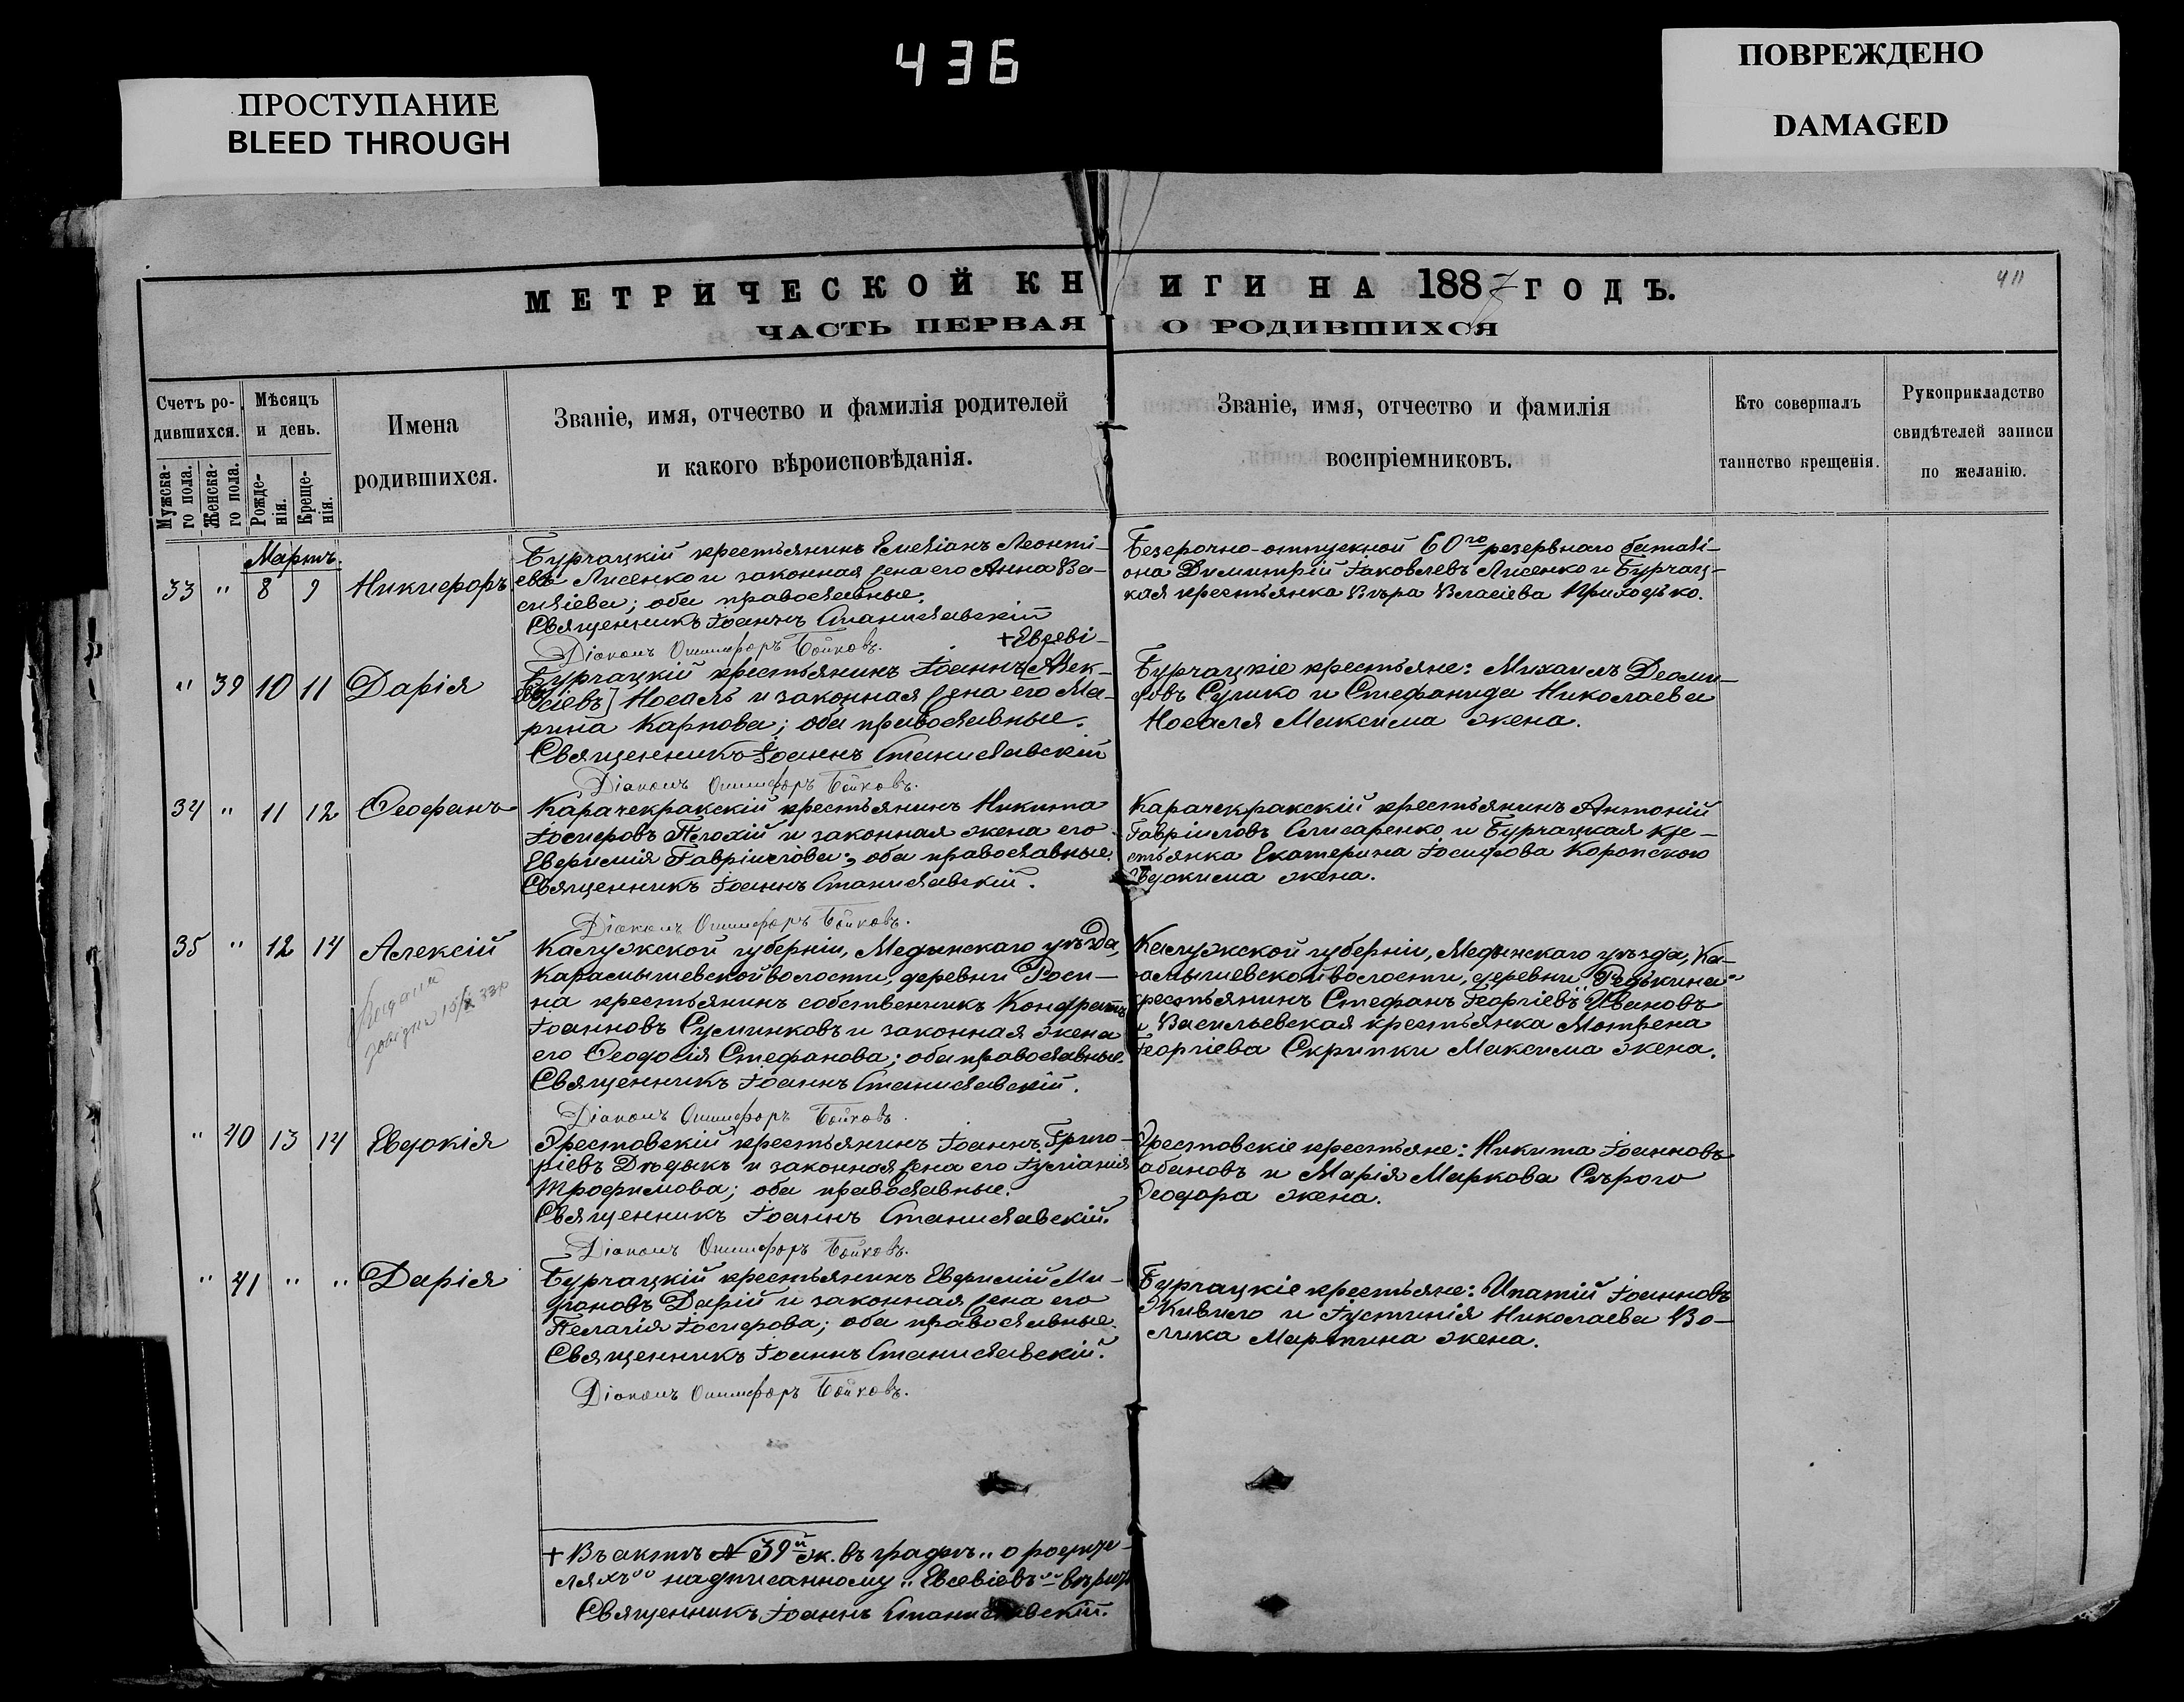 436
ПРОСТУПАНИЕ
BLEED THROUGH
ПОВРЕЖДЕНО
DAMAGED
МЕТРИЧЕСКОЙ КНИГИ НА 1887 ГОДЪ.
411
ЧАСТЬ ПЕРВАЯ О РОДИВШИХСЯ
Счетъ ро-
дившихся.
Мужска-
го пола.
Женска-
го пола.
Мѣсяцъ
и день.
Рожде-
нія.
Креще-
нія.
Имена
родившихся.
Званіе, имя, отчество и фамилія родителей
и какого вѣроисповѣданія.
Званіе, имя, отчество и фамилія
воспріемниковъ.
Кто совершалъ
таинство крещенія.
Рукоприкладство
свидѣтелей записи
по желанію.
Мартъ.
33 " 8 9 Никифоръ.
Бурчацкій крестьянинъ Емеліанъ Леонті-
евъ Лисенко и законная жена его Анна Ва-
силіева; оба православные.
Священникъ Іоаннъ Станиславскій
Діаконъ Онисифоръ Бойковъ.
Безсрочно-отпускной 60го резервнаго баталі-
она Димитрій Іаковлевъ Лисенко и Бурчац-
кая крестьянка Вѣра Власіева Приходько.
" 39 10 11 Дарія
+Евсеві-
Бурчацкій крестьянинъ Іоаннъ [Алек-
евъ
сіевъ] Носаль и законная жена его Ма-
рина Карпова; оба православные.
Священникъ Іоаннъ Станиславскій
Діаконъ Онисифоръ Бойковъ.
Бурчацкіе крестьяне: Михаилъ Деоми-
довъ Сулико и Стефанида Николаева
Носаля Максима жена.
34 " 11 12 Ѳеофанъ
Карачекракскій крестьянинъ Никита
Іосифовъ Плохій и законная жена его
Евфимія Гавріилова; оба православные.
Священникъ Іоаннъ Станиславскій.
Діаконъ Онисифоръ Бойковъ.
Карачекракскій крестьянинъ Антоній
Гавріиловъ Слисаренко и Бурчацкая кре-
стьянка Екатерина Іосифова Коропского
Евдокима жена.
35 " 12 14 Алексій
Калужской губерніи, Медынскаго уѣзда,
Карамышевской волости, деревни Роси-
на крестьянинъ собственникъ Кондратъ
Іоанновъ Сулимковъ и законная жена
его Ѳеодосія Стефанова; оба православные.
Священникъ Іоаннъ Станиславскій.
Діаконъ Онисифоръ Бойковъ.
Калужской губерніи, Медынскаго уѣзда, Ка-
рамышевской волости, деревни „Редькина"
крестьянинъ Стефанъ Георгіевъ Ивановъ
и Васильевская крестьянка Мотрена
Георгіева Скрипки Максима жена.
" 40 13 14 Евдокія
Эрестовскій крестьянинъ Іоаннъ Григо-
ріевъ Дѣдыкъ и законная жена его Іуліанія
Трофимова; оба православные.
Священникъ Іоаннъ Станиславскій.
Діаконъ Онисифоръ Бойковъ.
Эрестовскіе крестьяне: Никита Іоанновъ
абановъ и Марія Маркова Сѣрого
Ѳеодора жена.
" 41 " " Дарія
Бурчацкій крестьянинъ Евфимій Ми-
роновъ Дарій и законная жена его
Пелагія Іосифова; оба православные.
Священникъ Іоаннъ Станиславскій.
Діаконъ Онисифоръ Бойковъ.
Бурчацкіе крестьяне: Ипатій Іоанновъ
Живило и Іустинія Николаева Во-
лика Мартина жена.
+ Въ актѣ № 39й ж. въ графѣ „о родите-
ляхъ" надписанному „Евсевіевъ"
Священникъ Іоаннъ Станиславскій.